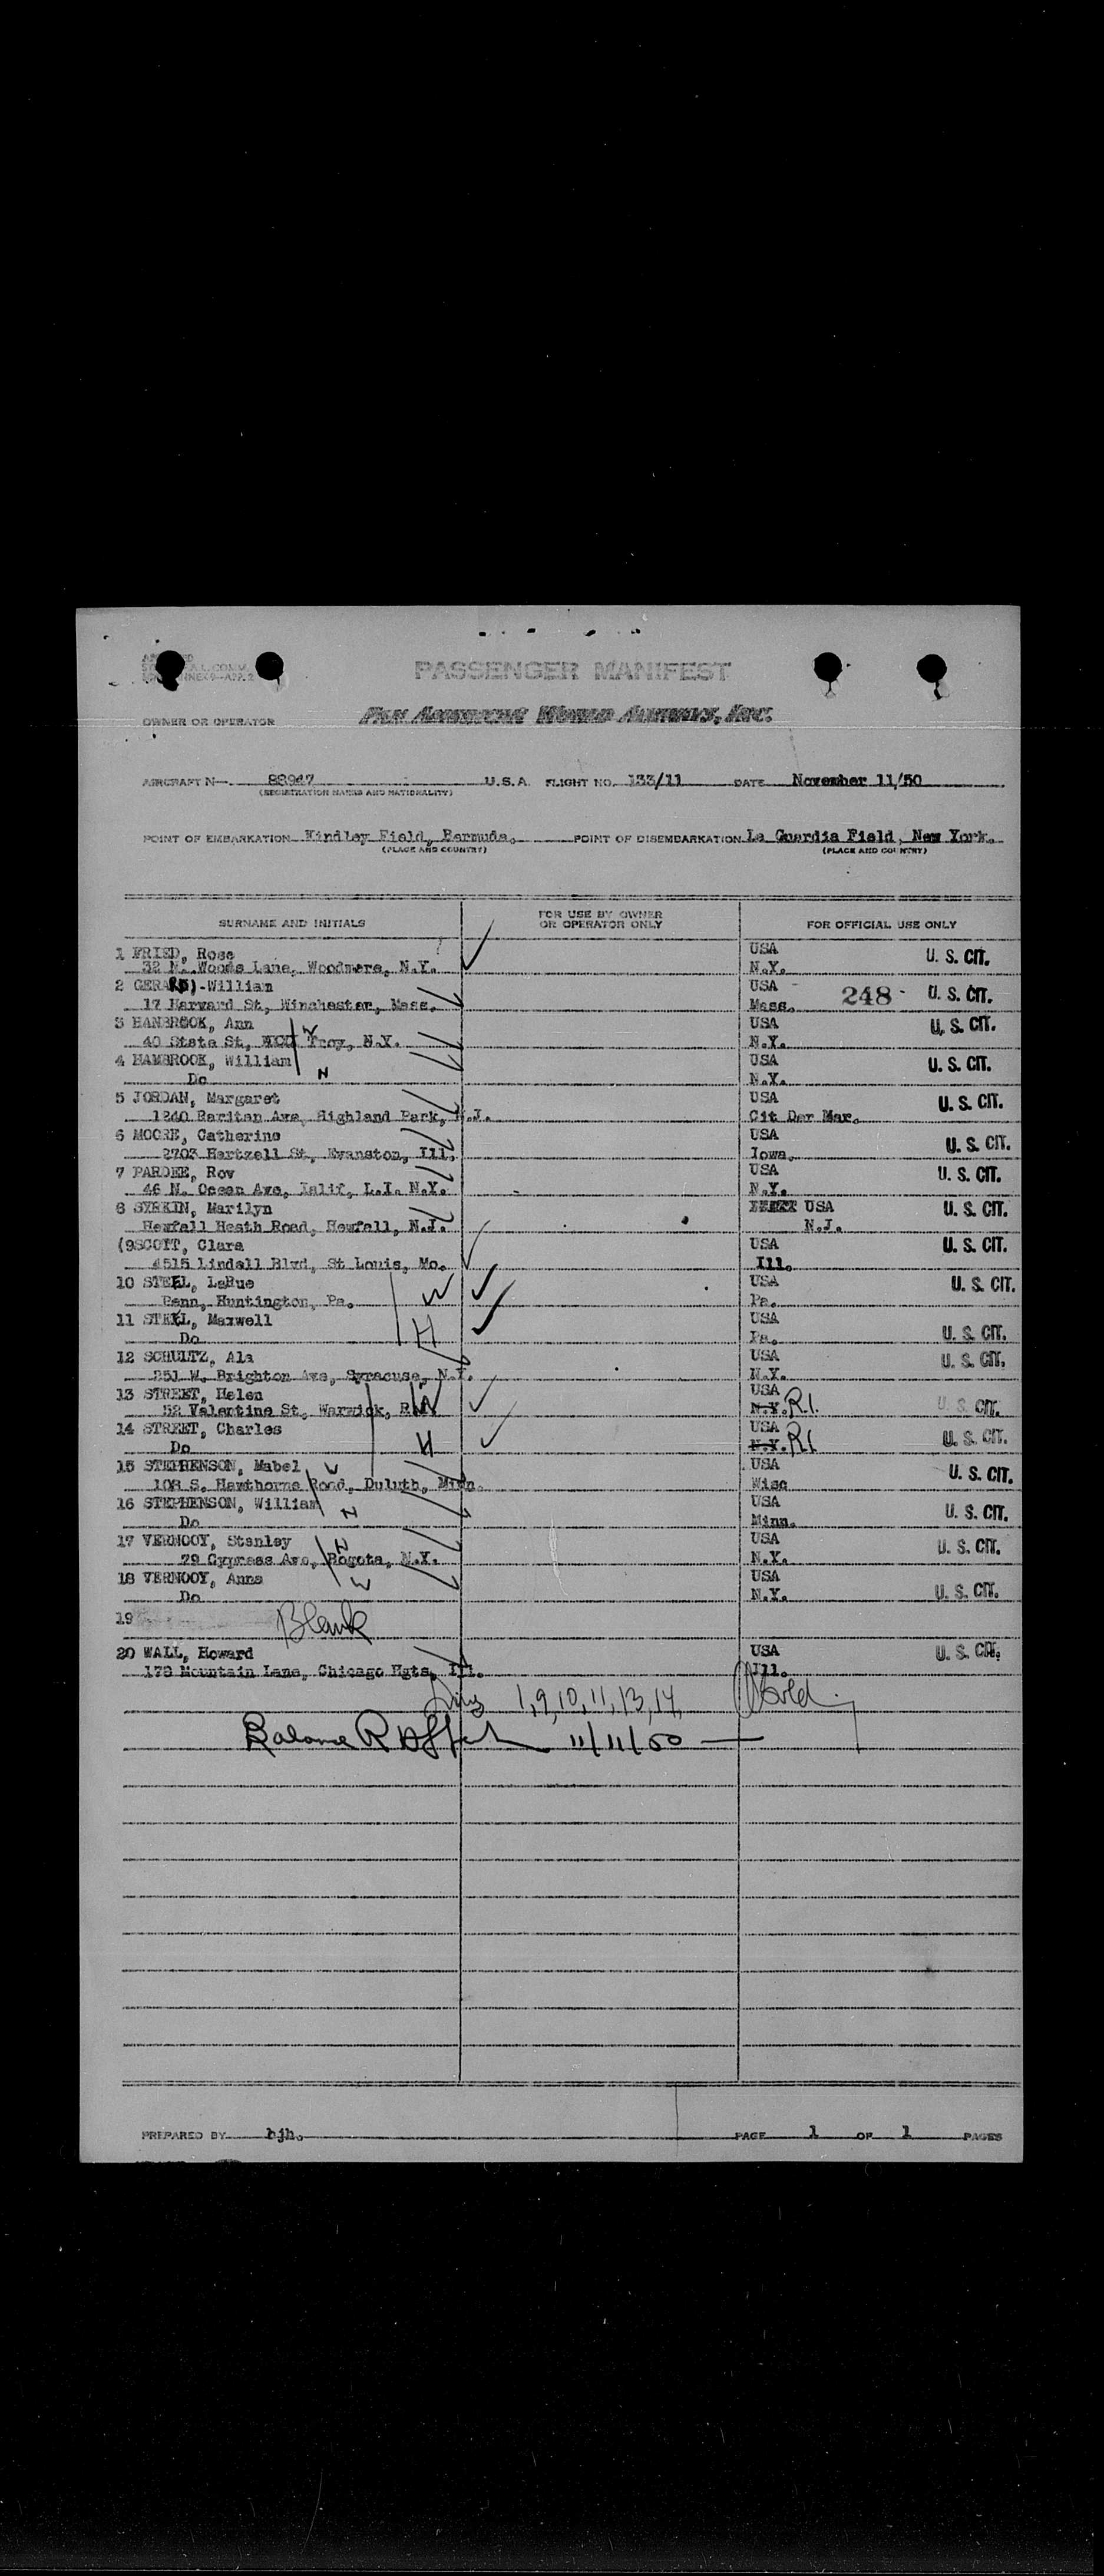 PASSENGER MANIFEST
OWNER OR OPERATOR PAN AMERICAN WORLD AIRWAYS, INC.
AIRCRAFT N— 88947 U.S.A. FLIGHT NO. 133/11 DATE November 11/50
(REGISTRATION MARKS AND NATIONALITY)
POINT OF EMBARKATION Kindley Field, Bermuda. POINT OF DISEMBARKATION La Guardia Field, New York.
(PLACE AND COUNTRY) (PLACE AND COUNTRY)
SURNAME AND INITIALS FOR USE BY OWNER OR OPERATOR ONLY FOR OFFICIAL USE ONLY
1 FRIED, Rose USA U. S. CIT.
32 N. Woods Lane, Woodmere, N.Y. N.Y.
2 William USA 248 U. S. CIT.
17 Harvard St, Winchester, Mass. Mass.
3 HANBROOK, Ann W USA U. S. CIT.
40 State St, Troy, N.Y. N.Y.
4 HAMBROOK, William H USA U. S. CIT.
Do N.Y.
5 JORDAN, Margaret USA U. S. CIT.
1240 Raritan Ave, Highland Park, N.J. Cit Der Mar.
6 MOORE, Catherine USA U. S. CIT.
2703 Hartzell St, Evanston, Ill. Iowa.
7 PARDEE, Roy USA U. S. CIT.
46 N. Ocean Ave, L.I. N.Y. N.Y.
8 Marilyn USA U. S. CIT.
Heath Road, N.J. N.J.
(9SCOTT, Clara USA U. S. CIT.
4515 Lindell Blvd, St Louis, Mo. Ill.
10 STEEL, LaRue W USA U. S. CIT.
Penn, Huntington, Pa. Pa.
11 STEEL, Maxwell H USA U. S. CIT.
Do Pa.
12 SCHULTZ, Ala USA U. S. CIT.
251 W. Brighton Ave, Syracuse, N.Y. N.Y.
13 STREET, Helen W USA U. S. CIT.
52 Valentine St, Warwick, R.I. N.Y. RI.
14 STREET, Charles H USA U. S. CIT.
Do N.Y. RI
15 STEPHENSON, Mabel W USA U. S. CIT.
108 S. Hawthorne Road, Duluth, Minn. Wisc
16 STEPHENSON, William H USA U. S. CIT.
Do Minn.
17 VERNOOY, Stanley H USA U. S. CIT.
29 Cypress Ave, Bogota, N.Y. N.Y.
18 VERNOOY, Anna W USA U. S. CIT.
Do N.Y.
19 Blank
20 WALL, Howard USA U. S. CIT.
170 Mountain Lane, Chicago Hgts, Ill. Ill.
1, 9, 10, 11, 13, 14,
Balance 11/11/50
PREPARED BY hjh. PAGE 1 OF 1 PAGES